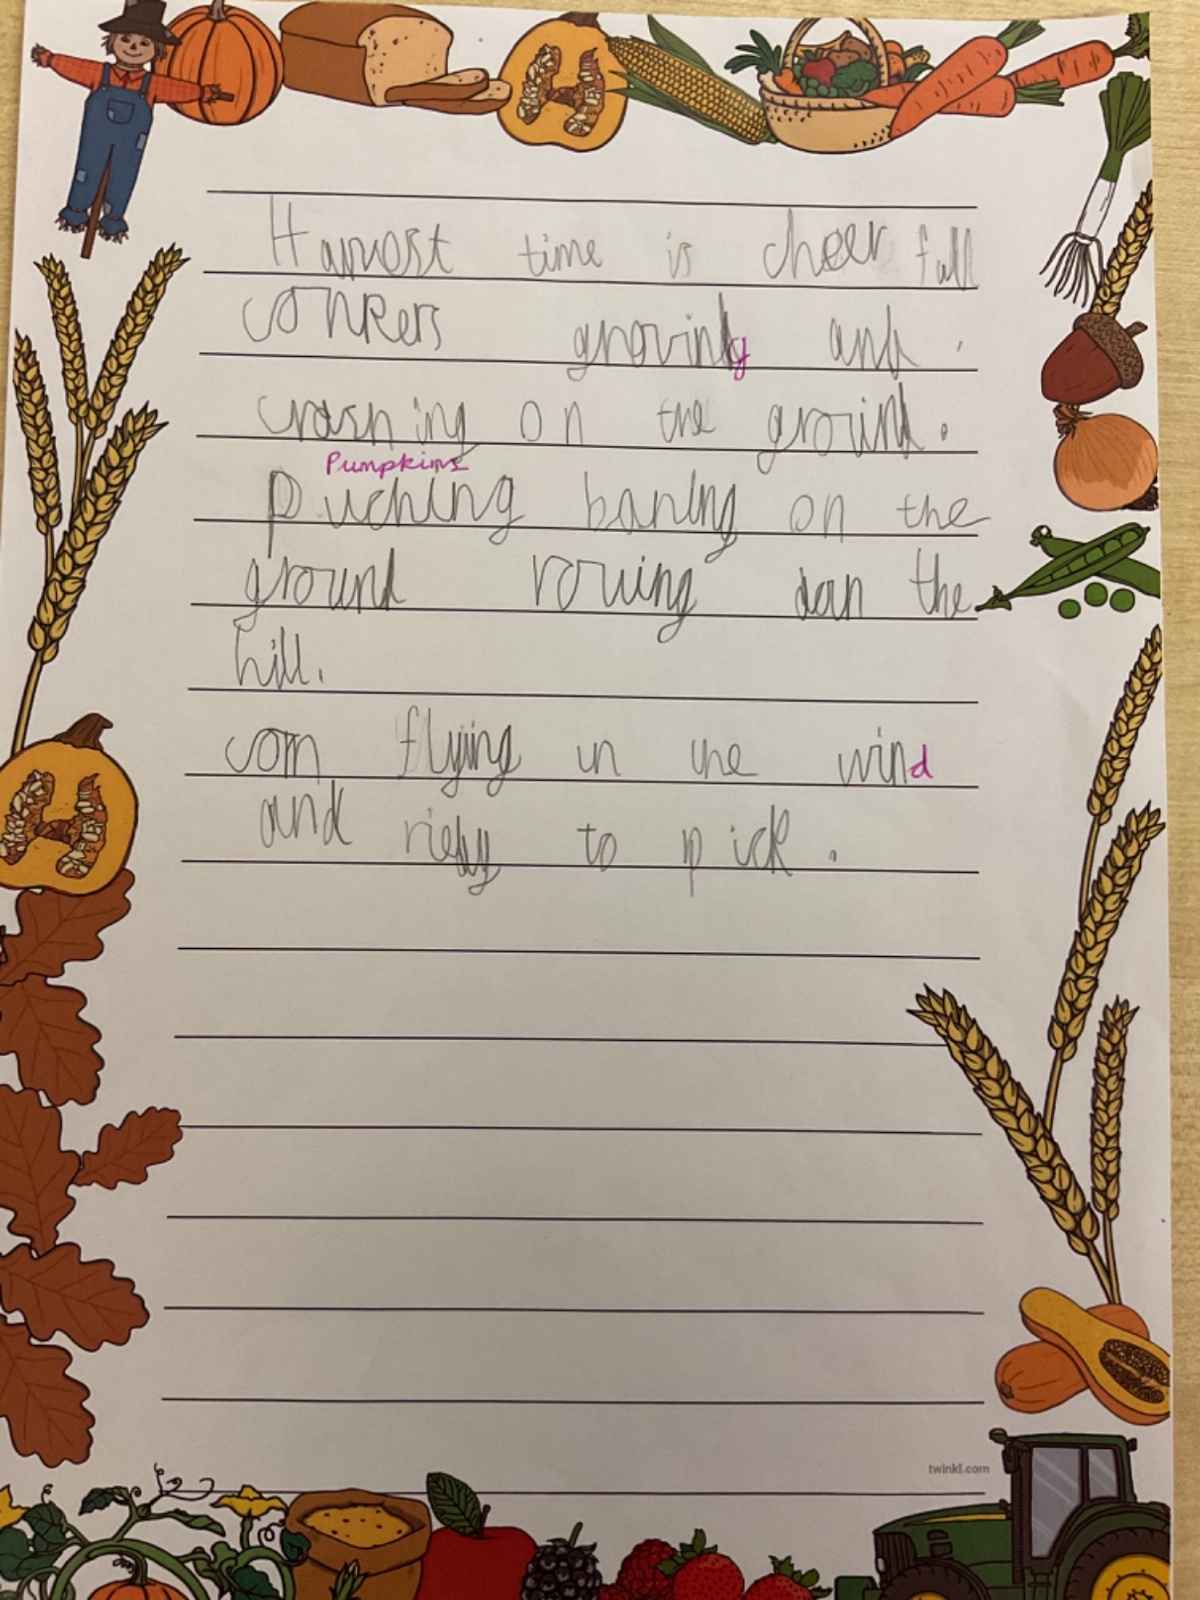 Harvest time is cheer full
conkers groving and
crashing on the ground.
Pumpkins
puching baning on the
ground rouing dan the
hill.
corn flying in the wind
and riedy to pick.
twinkl.com